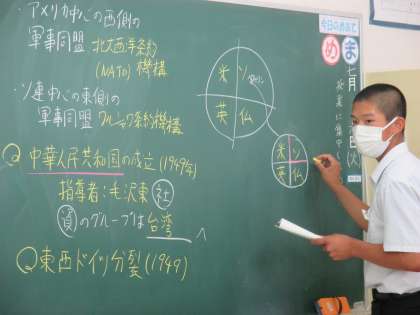 ・アメリカ中心の西側の
軍事同盟 北大西洋条約
(NATO) 機構
・ソ連中心の東側の
軍事同盟 ワルシャワ条約機構
Q 中華人民共和国の成立(1949年)
指導者:毛沢東 社
資のグループは台湾へ
Q 東西ドイツ分裂(1949)
米 ソ
英 仏
米 ソ
英 仏
今日のめあて
め ま
七月
日(火)
授業に集中